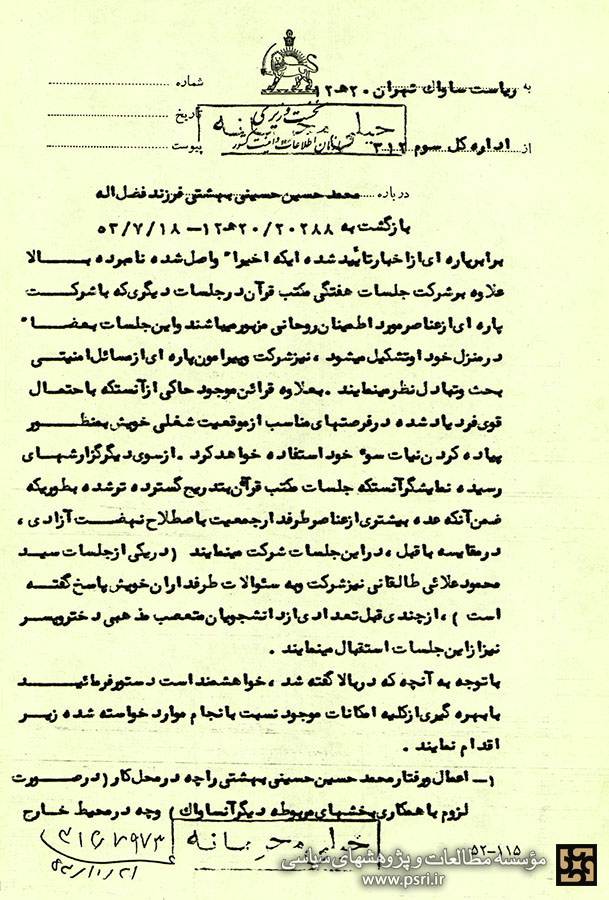 به ریاست ساواک تهران ۲۰هـ۱۲
شماره
نخست وزیری
تاریخ
خیلی محرمانه
سازمان اطلاعات و امنیت کشور
از اداره کل سوم ۳۱۲
پیوست
درباره محمد حسین حسینی بهشتی فرزند فضل اله
بازگشت به ۲۰/۲۰۲۸۸هـ۱۲ – ۵۳/۷/۱۸
برابر پاره ای از اخبار تأیید شده ایکه اخیرا" واصل شده نامبرده بـــالا
علاوه بر شرکت جلسات هفتگی مکتب قرآن در جلسات دیگری که با شرکـــت
پاره ای از عناصر مورد اطمینان روحانی مزبور میباشند و این جلسات بعضـا"
در منزل خود او تشکیل میشود ، نیز شرکت و پیرامون پاره ای از مسائل امنیتــی
بحث و تبادل نظر مینمایند . بعلاوه قرائن موجود حاکی از آنستکه با حتمال
قوی فرد یاد شده در فرصتهای مناسب از موقعیت شغلی خویش بمنظـــور
پیاده کردن نیات سوء خود استفاده خواهد کرد . از سوی دیگر گزارشهـای
رسیده نمایشگر آنستکه جلسات مکتب قرآن بتدریج گسترده تر شده بطوریکه
ضمن آنکه عده بیشتری از عناصر طرفدار جمعیت باصطلاح نهضـت آزادی ،
در مقایسه با قبل ، در این جلسات شرکت مینمایند ( در یکی از جلسات سید
محمود علائی طالقانی نیز شرکت و به سئوالات طرفداران خویش پاسخ گفتــه
است ) ، از چندی قبل تعدادی از دانشجویان متعصب مذهبی دختر و پســر
نیز از این جلسات استقبال مینمایند .
با توجه به آنچه که در بالا گفته شد ، خواهشمند است دستور فرمائیـــد
با بهره گیری از کلیه امکانات موجود نسبت بانجام موارد خواسته شده زیــر
اقدام نمایند .
۱– اعمال و رفتار محمد حسین حسینی بهشتی را چه در محل کار ( در صـورت
لزوم با همکاری بخشهای مربوطه دیگر آنساواک ) وچه در محیط خارج
خیلی محرمانه
۵۲–۱۱۵
مؤسسه مطالعات و پژوهشهای سیاسی
www.psri.ir